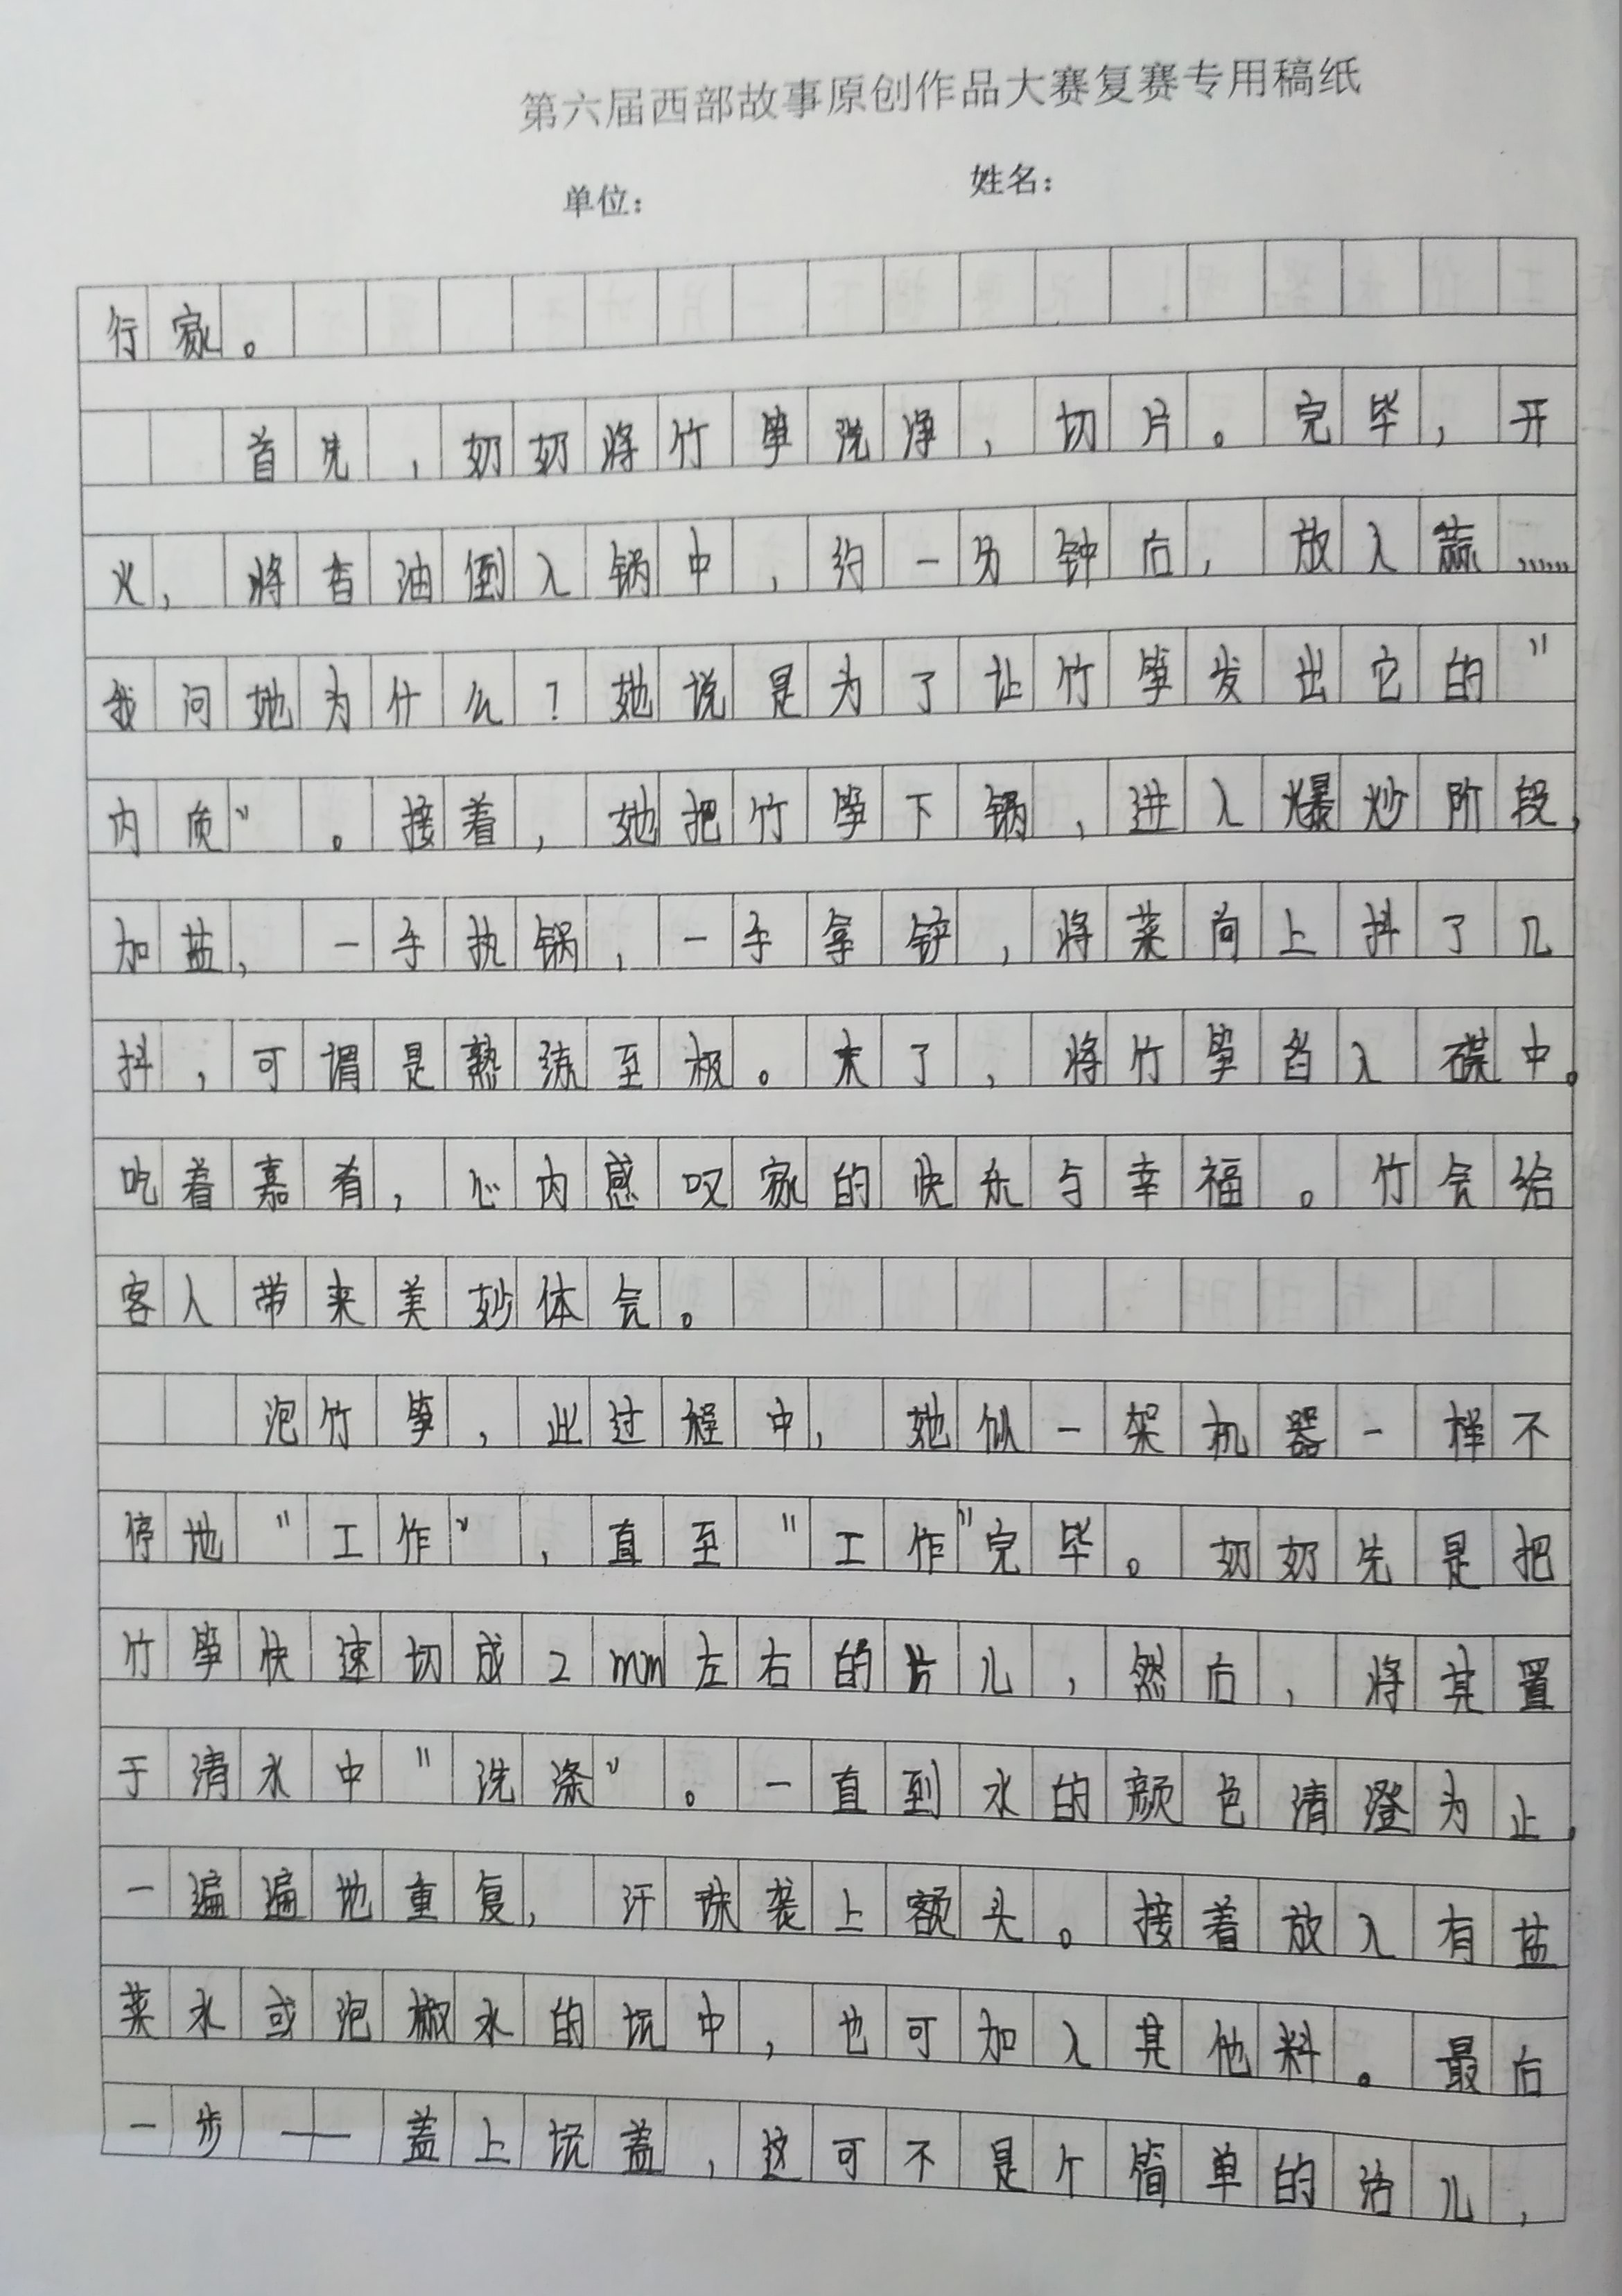 第六届西部故事原创作品大赛复赛专用稿纸
单位： 姓名：
行家。
首先，奶奶将竹笋洗净，切片。完毕，开
火，将香油倒入锅中，约一分钟后，放入蒜……
我问她为什么？她说是为了让竹笋发出它的"
内质"。接着，她把竹笋下锅，进入爆炒阶段，
加盐，一手执锅，一手拿铲，将菜向上抖了几
抖，可谓是熟练至极。末了，将竹笋舀入碟中。
吃着嘉肴，心内感叹家的快乐与幸福。竹会给
客人带来美妙体会。
泡竹笋，此过程中，她似一架机器一样不
停地"工作"，直至"工作"完毕。奶奶先是把
竹笋快速切成2mm左右的片儿，然后，将其置
于清水中"洗涤"。一直到水的颜色清澄为止，
一遍遍地重复，汗珠袭上额头。接着放入有盐
菜水或泡椒水的坑中，也可加入其他料。最后
一步——盖上坑盖，这可不是个简单的活儿，